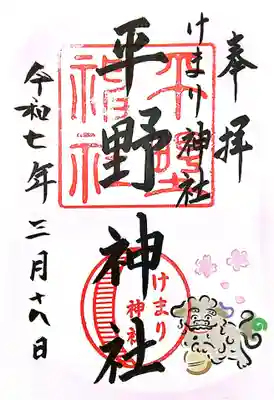 奉拝
けまり神社
平野神社
令和七年三月十八日
平野神社
けまり
神社